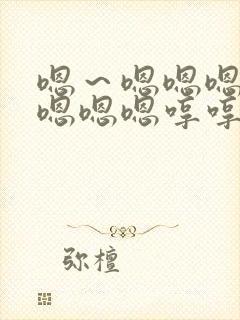 嗯～嗯嗯嗯
嗯嗯嗯哼哼
弥檀